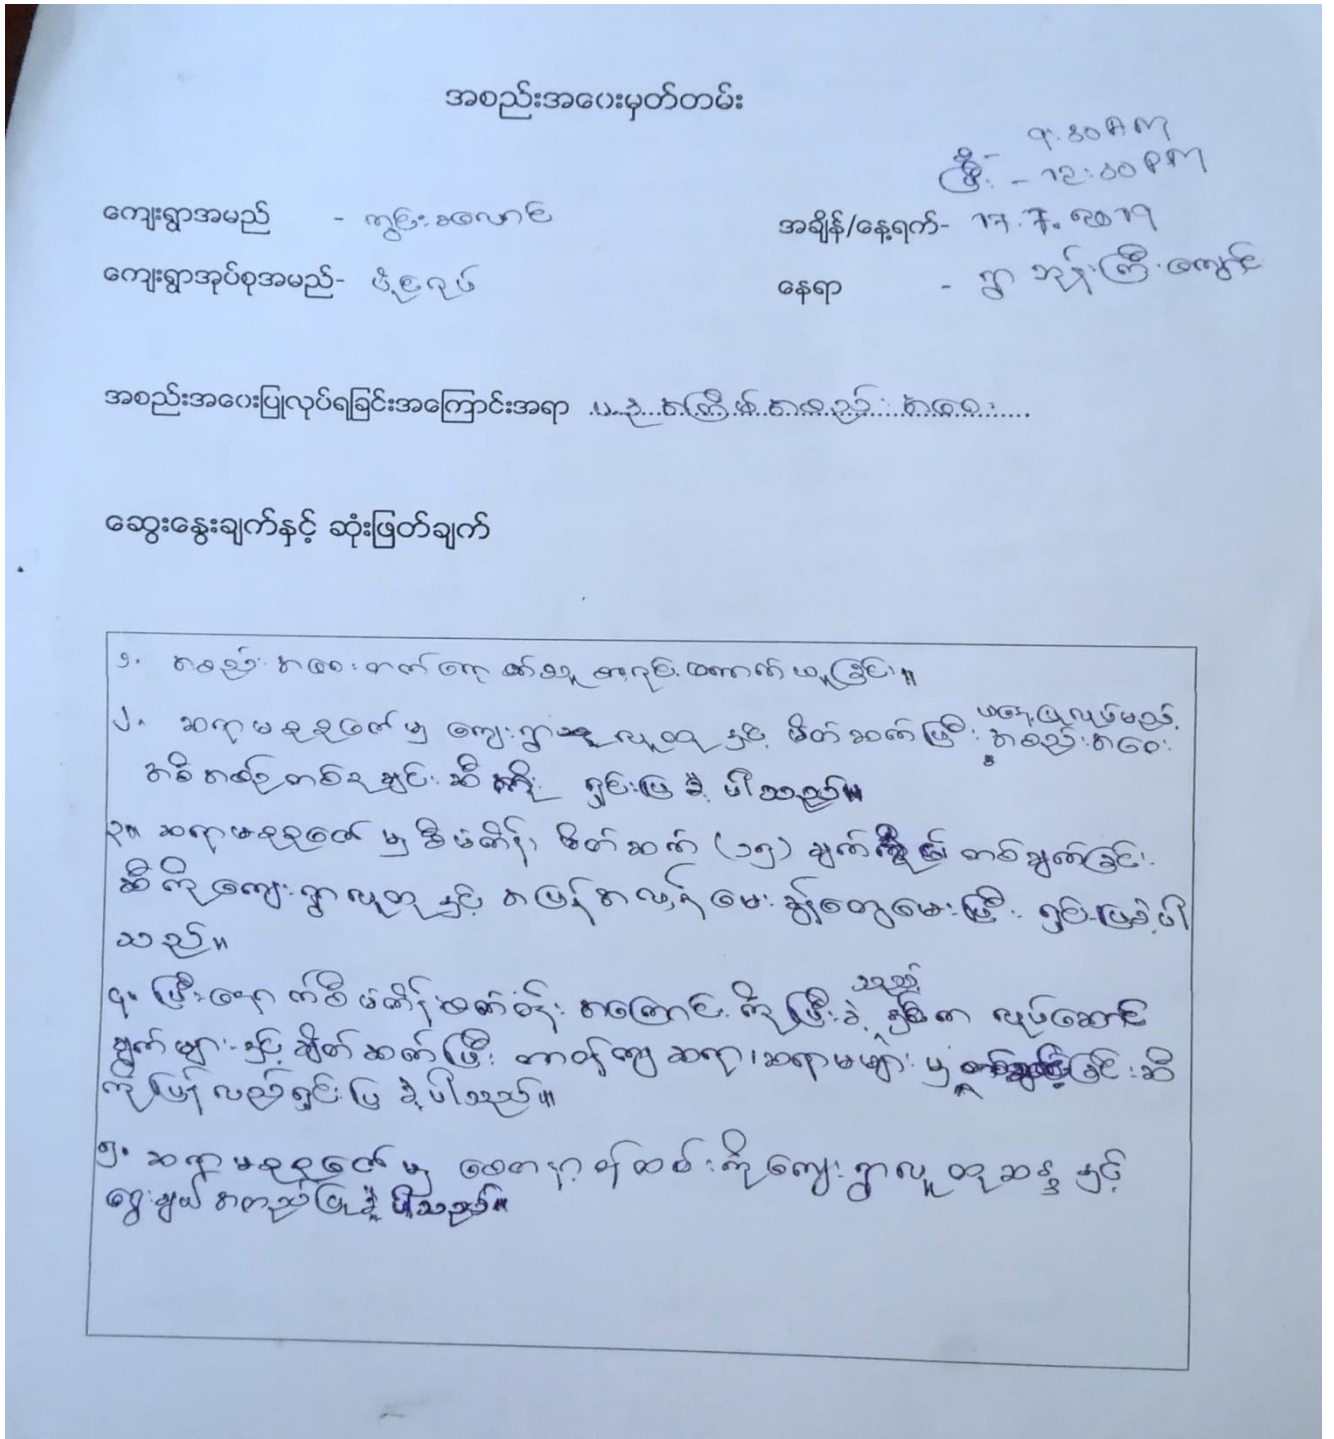 အစည်းအဝေးမှတ်တမ်း
၉:30AM
ပြီး - ၁၂:00PM
ကျေးရွာအမည် - ကွင်းခလောင်
အချိန်/နေ့ရက်- ၁၇.7.၂၀၁၉
ကျေးရွာအုပ်စုအမည်-
နေရာ - ရွာဘုန်းကြီးကျောင်း
အစည်းအဝေးပြုလုပ်ရခြင်းအကြောင်းအရာ ပ-ဒု အကြိမ်အစည်းအဝေး
ဆွေးနွေးချက်နှင့် ဆုံးဖြတ်ချက်
၁. အစည်းအဝေးတက်ရောက်သူ စာရင်းကောက်ယူခြင်း။
၂. ဆရာမ မှ ကျေးရွာလူထု နှင့် မိတ်ဆက်ပြီး ယနေ့ပြုလုပ်မည့် အစည်းအဝေး
အစီအစဉ်တစ်ခုချင်းဆီကို ရှင်းပြခဲ့ပါသည်။
၃။ ဆရာမ မှ စီမံကိန်း မိတ်ဆက် (၁၅) ချက် တစ်ချက်ခြင်း
ဆီကို ကျေးရွာလူထု နှင့် အပြန်အလှန် မေးခွန်းတွေမေးပြီး ရှင်းပြခဲ့ပါ
သည်။
၄။ ပြီးနောက်စီမံကိန်းစက်ဝန်းအကြောင်းကို ပြီးခဲ့သည့်နှစ်က လုပ်ဆောင်
ချက်များနှင့် ချိတ်ဆက်ပြီး တာဝန်ကျဆရာ၊ဆရာမများ မှ တစ်ချက်ခြင်းဆီ
ကိုပြန်လည်ရှင်းပြခဲ့ပါသည်။
၅. ဆရာမ မှ စေတနာ့ဝန်ထမ်းကိုကျေးရွာလူထုဆန္ဒ နှင့်
ရွေးချယ်အတည်ပြုခဲ့ပါသည်။